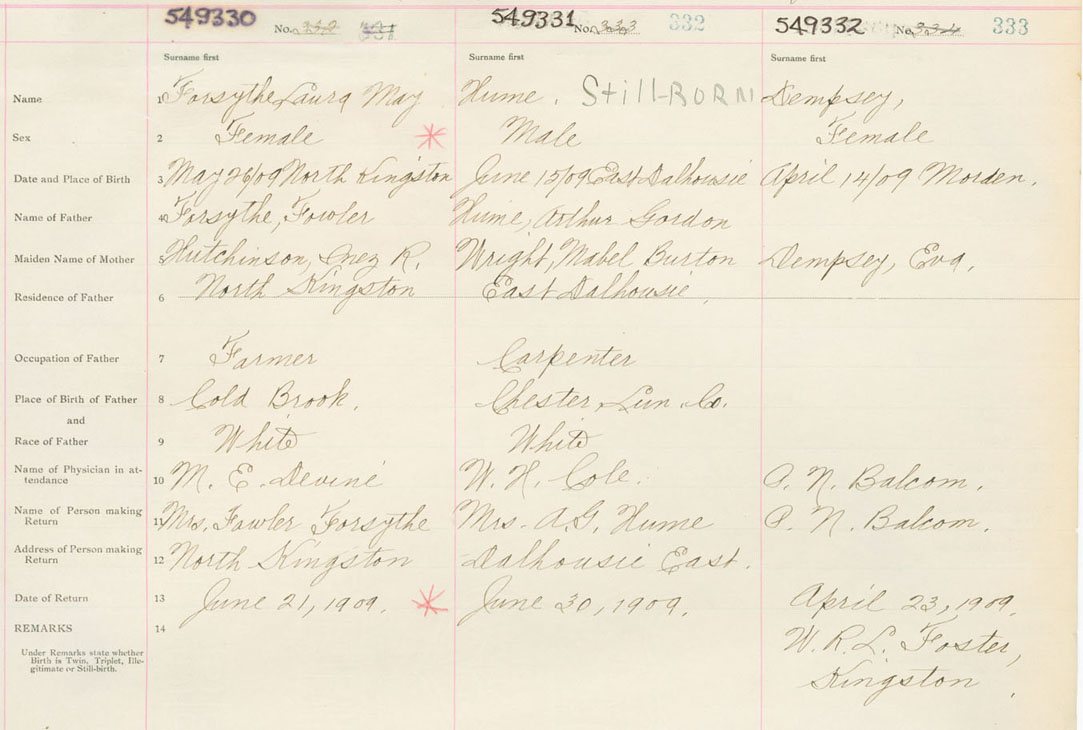 549330 No. 331 549331 No. 333 332 549332 No. 334 333
Surname first Surname first Surname first
Name 1 Forsythe Laura May Hume. Still-BORN Dempsey,
Sex 2 Female Male Female
Date and Place of Birth 3 May 26/09 North Kingston June 15/09 East Dalhousie April 14/09 Morden.
Name of Father 4 Forsythe, Fowler Hume, Arthur Gordon
Maiden Name of Mother 5 Hutchinson, Inez R. Wright, Mabel Burton Dempsey, Eva.
Residence of Father 6 North Kingston East Dalhousie,
Occupation of Father 7 Farmer Carpenter
Place of Birth of Father 8 Cold Brook. Chester Lun. Co.
and
Race of Father 9 White White
Name of Physician in at-
tendance 10 M. E. Devine W. H. Cole. P. N. Balcom.
Name of Person making
Return 11 Mrs. Fowler Forsythe Mrs. A.G. Hume P. N. Balcom.
Address of Person making
Return 12 North Kingston Dalhousie East.
Date of Return 13 June 21, 1909. June 30, 1909. April 23, 1909.
REMARKS 14 W. R. L. Foster,
Under Remarks state whether
Birth is Twin, Triplet, Ille-
gitimate or Still-birth.
Kingston